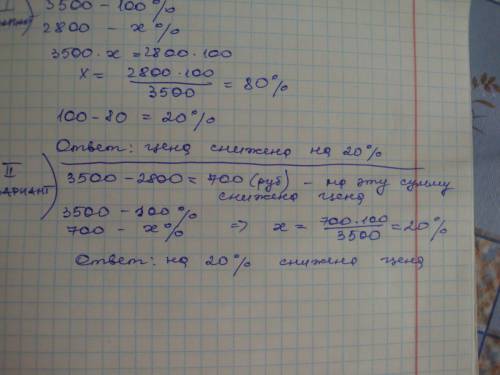 3500 - 100%
2800 - x%
3500 · x = 2800 · 100
x = 2800 · 100 / 3500 = 80%
100 - 80 = 20%
Ответ: цена снижена на 20%
II вариант) 3500 - 2800 = 700 (руб) - на эту сумму
снижена цена
3500 - 100%
700 - x% => x = 700 · 100 / 3500 = 20%
Ответ: на 20% снижена цена